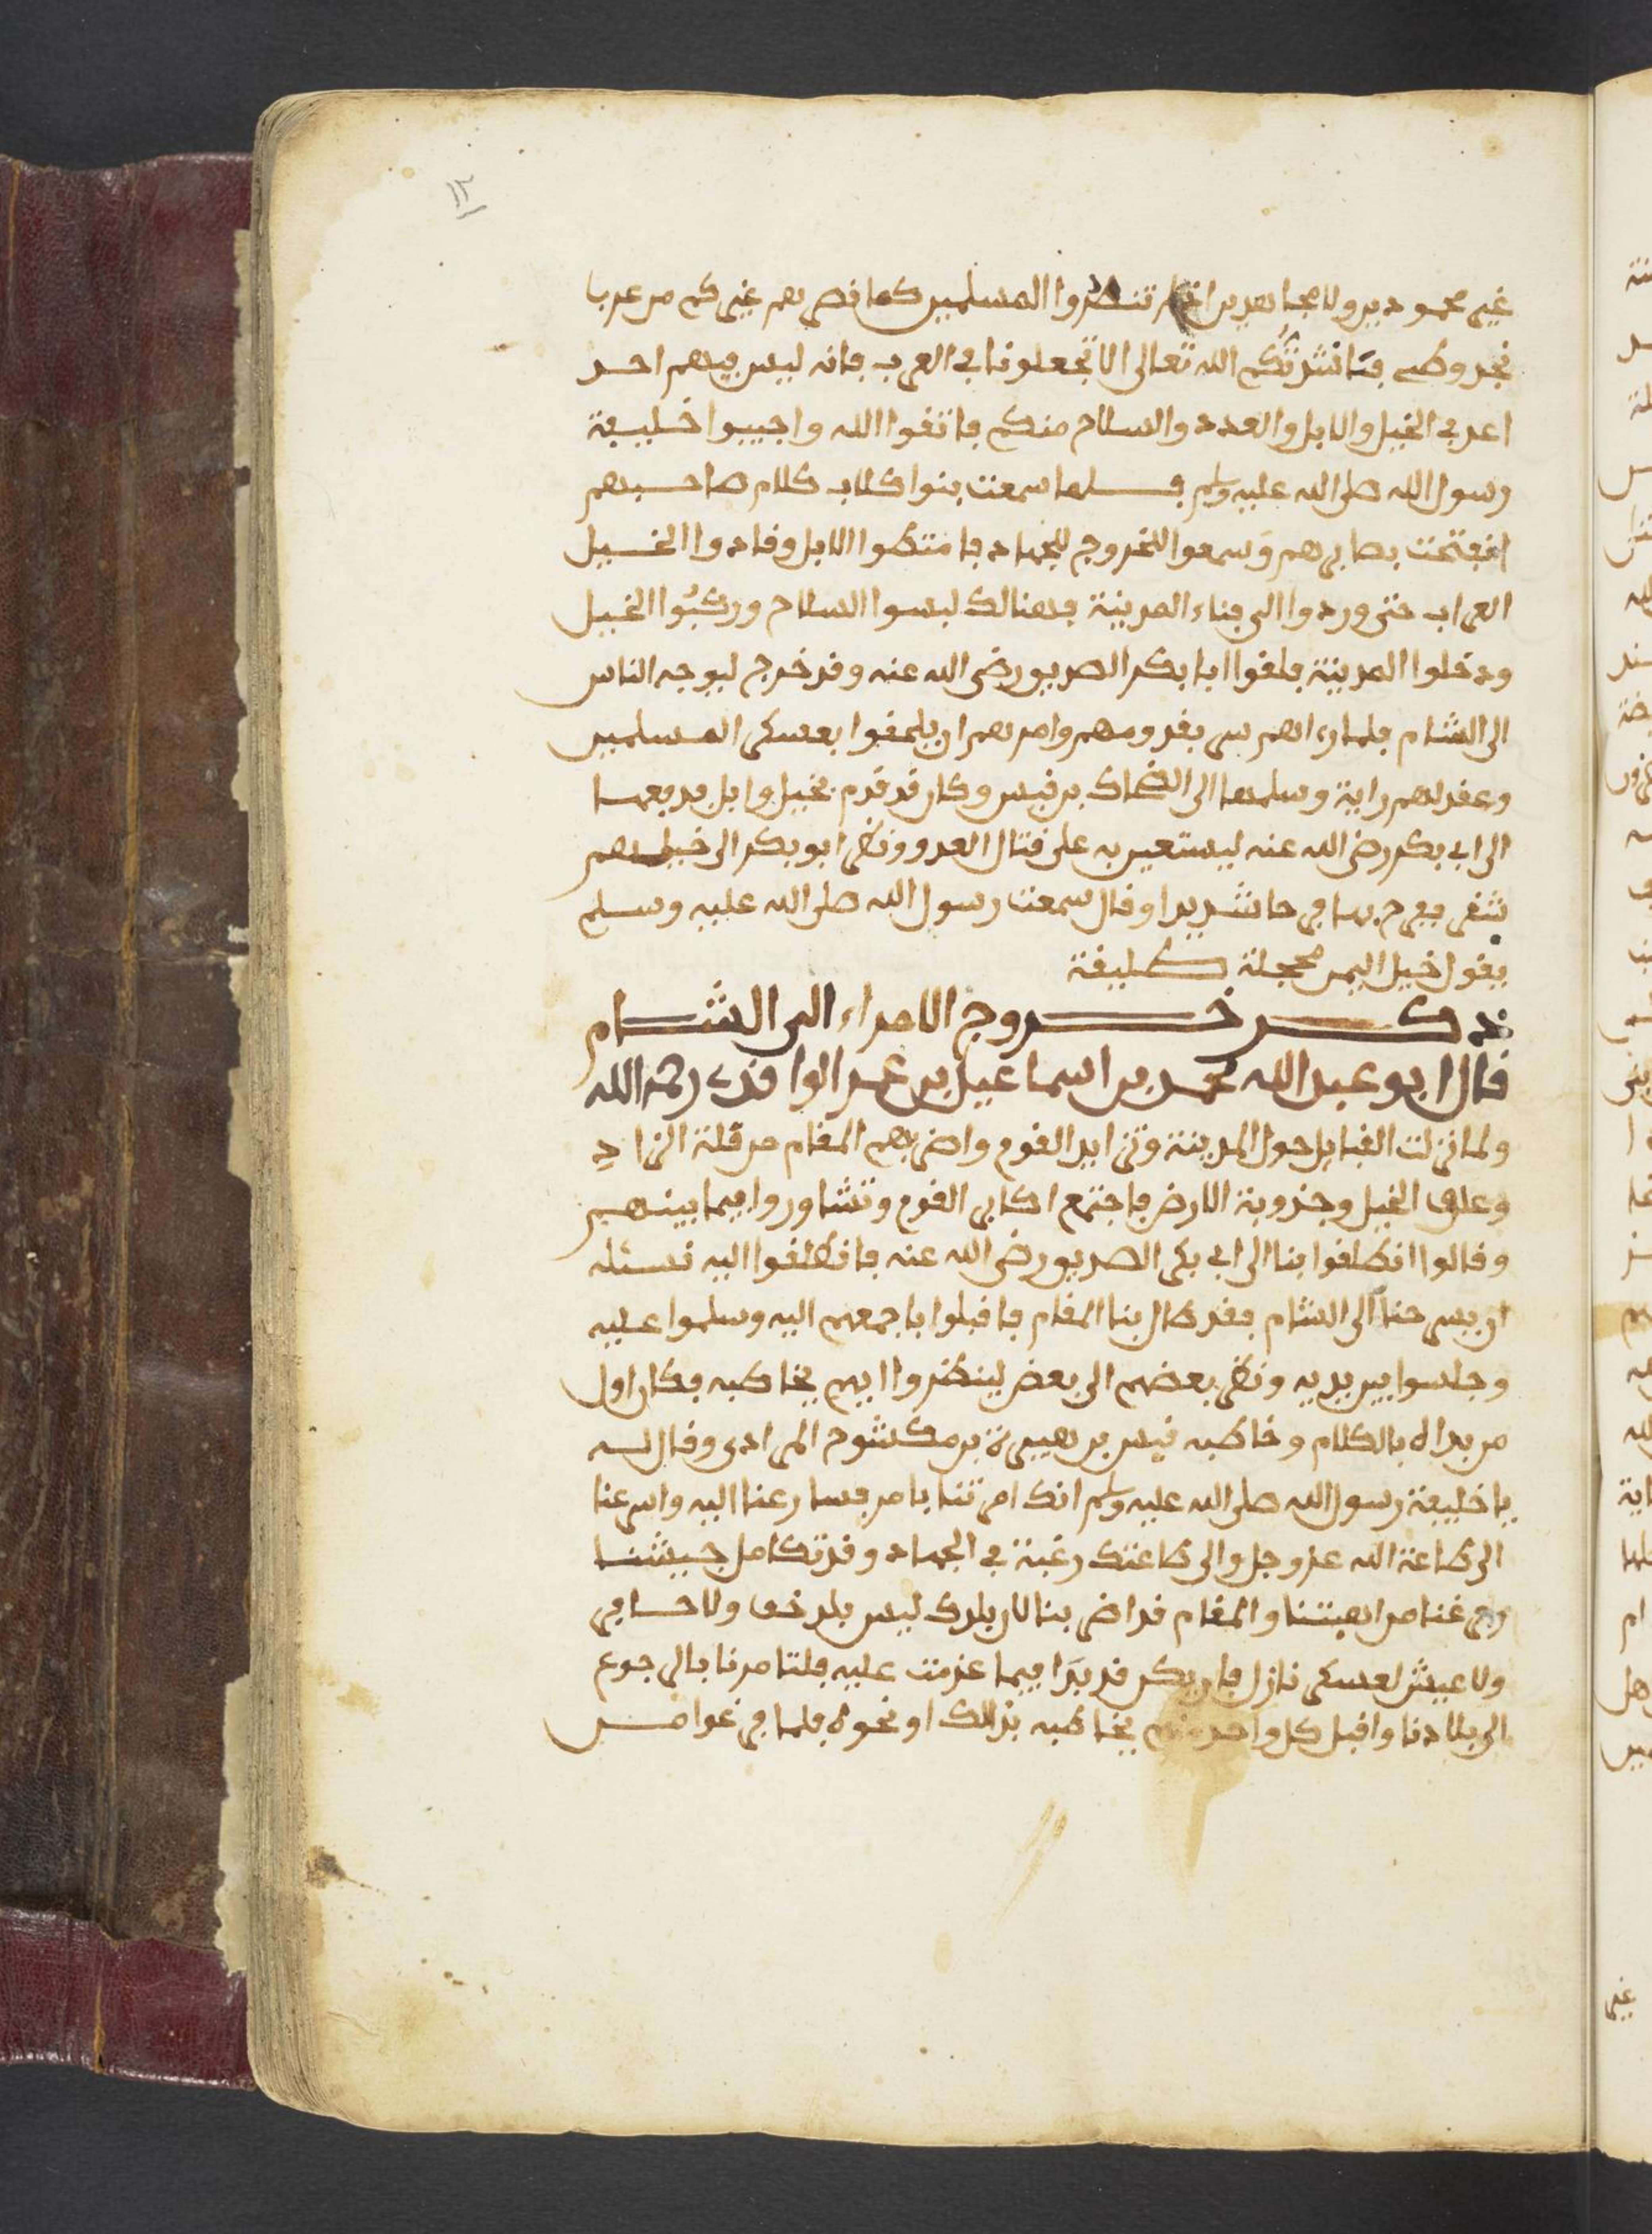 ١٢
غير محمودين ولا مجاهدين تنصروا المسلمين كما نصرهم غيركم من عربا
نجد وطي فانشدتكم الله تعالى الا تجعلونا في العرب فانه ليس فيهم احد
اعد في الخيل والابل والعدد والسلاح منكم فاتقوا الله واجيبوا خليفة
رسول الله صلى الله عليه وسلم فلما سمعت بنوا كلاب كلام صاحبهم
انفتحت بصايرهم وسمعوا للخروج للجهاد فامتطوا الابل وقادوا الخيل
العراب حتى وردوا الى فناء المدينة فهنالك لبسوا السلاح وركبوا الخيل
ودخلوا المدينة فلقوا ابا بكر الصديق رضي الله عنه وقد خرج ليوجه الناس
الى الشام فلما رءاهم سر بقدومهم وامرهم ان يلحقوا بعسكر المسلمين
وعقد لهم راية وسلمها الى الضحاك بن قيس وكان قد قدم بخيل وابل يدفعها
الى ابي بكر رضي الله عنه ليستعين به على قتال العدو ونظر ابو بكر الى خيلهم
شقر ففرح بها فرحا شديدا وقال سمعت رسول الله صلى الله عليه وسلم
يقول خيل اليمن محجلة طليقة
ذكر خروج الامراء الى الشام
قال ابو عبد الله محمد بن اسماعيل بن عمر الواقدي رحمه الله
ولما نزلت القبايل حول المدينة وتزايد القوم واضر بهم المقام من قلة الزاد
وعلف الخيل وجذوبة الارض فاجتمع اكابر القوم وتشاوروا فيما بينهم
وقالوا انطلقوا بنا الى ابي بكر الصديق رضي الله عنه فانطلقوا اليه نسئله
ان يسرحنا الى الشام فقد طال بنا المقام فاقبلوا باجمعهم اليه وسلموا عليه
وجلسوا بين يديه ونظر بعضهم الى بعض لينظروا ايهم يخاطبه فكان اول
من بداه بالكلام وخاطبه قيس بن هبيرة بن مكشوح المرادي وقال له
يا خليفة رسول الله صلى الله عليه وسلم انك امرتنا بامر فسارعنا اليه واسرعنا
الى طاعة الله عز وجل والى طاعتك رغبة في الجهاد وقد تكامل جيشنا
وفرغنا من اهبتنا والمقام قد اضر بنا لان بلدك ليس بلد خف ولا حافر
ولا عيش لعسكر نازل فان يكن قد بدا فيما عزمت عليه فلتامرنا بالرجوع
الى بلادنا واقبل كل واحد منهم يخاطبه بذالك او نحوه فلما فرغوا من